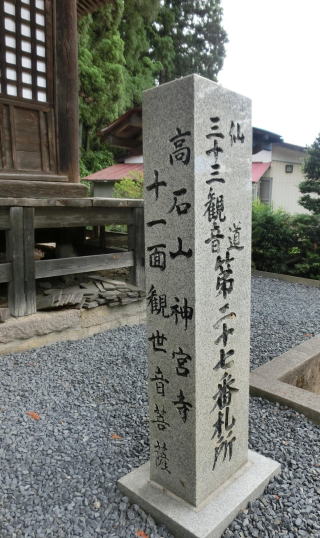 仙道
三十三観音第二十七番札所
高石山神宮寺
十一面観世音菩薩